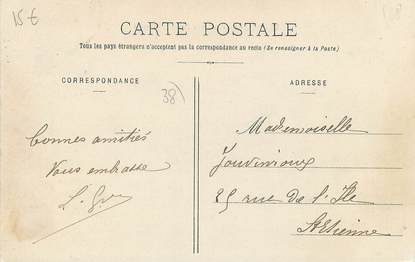 15 €
CARTE POSTALE
Tous les pays étrangers n'acceptent pas la correspondance au recto (Se renseigner à la Poste)
CORRESPONDANCE
ADRESSE
38)
Bonnes amitiés
Vous embrasse
Mademoiselle
25 rue de l'Ile
St Etienne